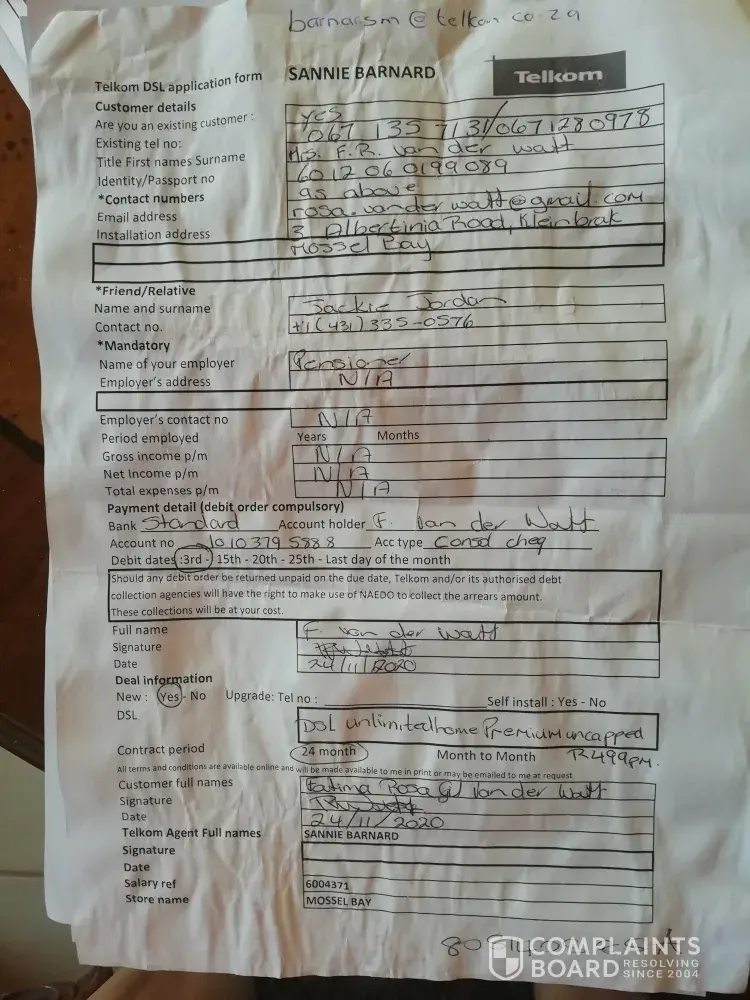 barnarsm@telkom.co.za
Telkom DSL application form SANNIE BARNARD Telkom
Customer details
Are you an existing customer : yes
Existing tel no: 067 135 7131/0671280978
Title First names Surname Mrs. F.R. van der Watt
Identity/Passport no 6012060199089
*Contact numbers as above
Email address rosa.vanderwatt@gmail.com
Installation address 3 Albertinia Road, Kleinbrak
Mossel Bay
*Friend/Relative
Name and surname Jackie Jordan
Contact no. +1(431)335-0576
*Mandatory
Name of your employer Pensioner
Employer's address N/A
Employer's contact no N/A
Period employed Years Months
Gross income p/m N/A
Net Income p/m N/A
Total expenses p/m N/A
Payment detail (debit order compulsory)
Bank Standard Account holder F. Van der Watt
Account no 10 10 379 588 8 Acc type Consd cheq
Debit dates :3rd - 15th - 20th - 25th - Last day of the month
Should any debit order be returned unpaid on the due date, Telkom and/or its authorised debt
collection agencies will have the right to make use of NAEDO to collect the arrears amount.
These collections will be at your cost.
Full name F. van der Watt
Signature
Date 24/11/2020
Deal information
New : Yes - No Upgrade: Tel no : Self install : Yes - No
DSL DSL unlimitedhome Premium uncapped
Contract period 24 month Month to Month R499pm.
All terms and conditions are available online and will be made available to me in print or may be emailed to me at request
Customer full names Fatima Rosa G van der Watt
Signature
Date 24/11/2020
Telkom Agent Full names SANNIE BARNARD
Signature
Date
Salary ref 6004371
Store name MOSSEL BAY
COMPLAINTS
BOARD RESOLVING
SINCE 2004